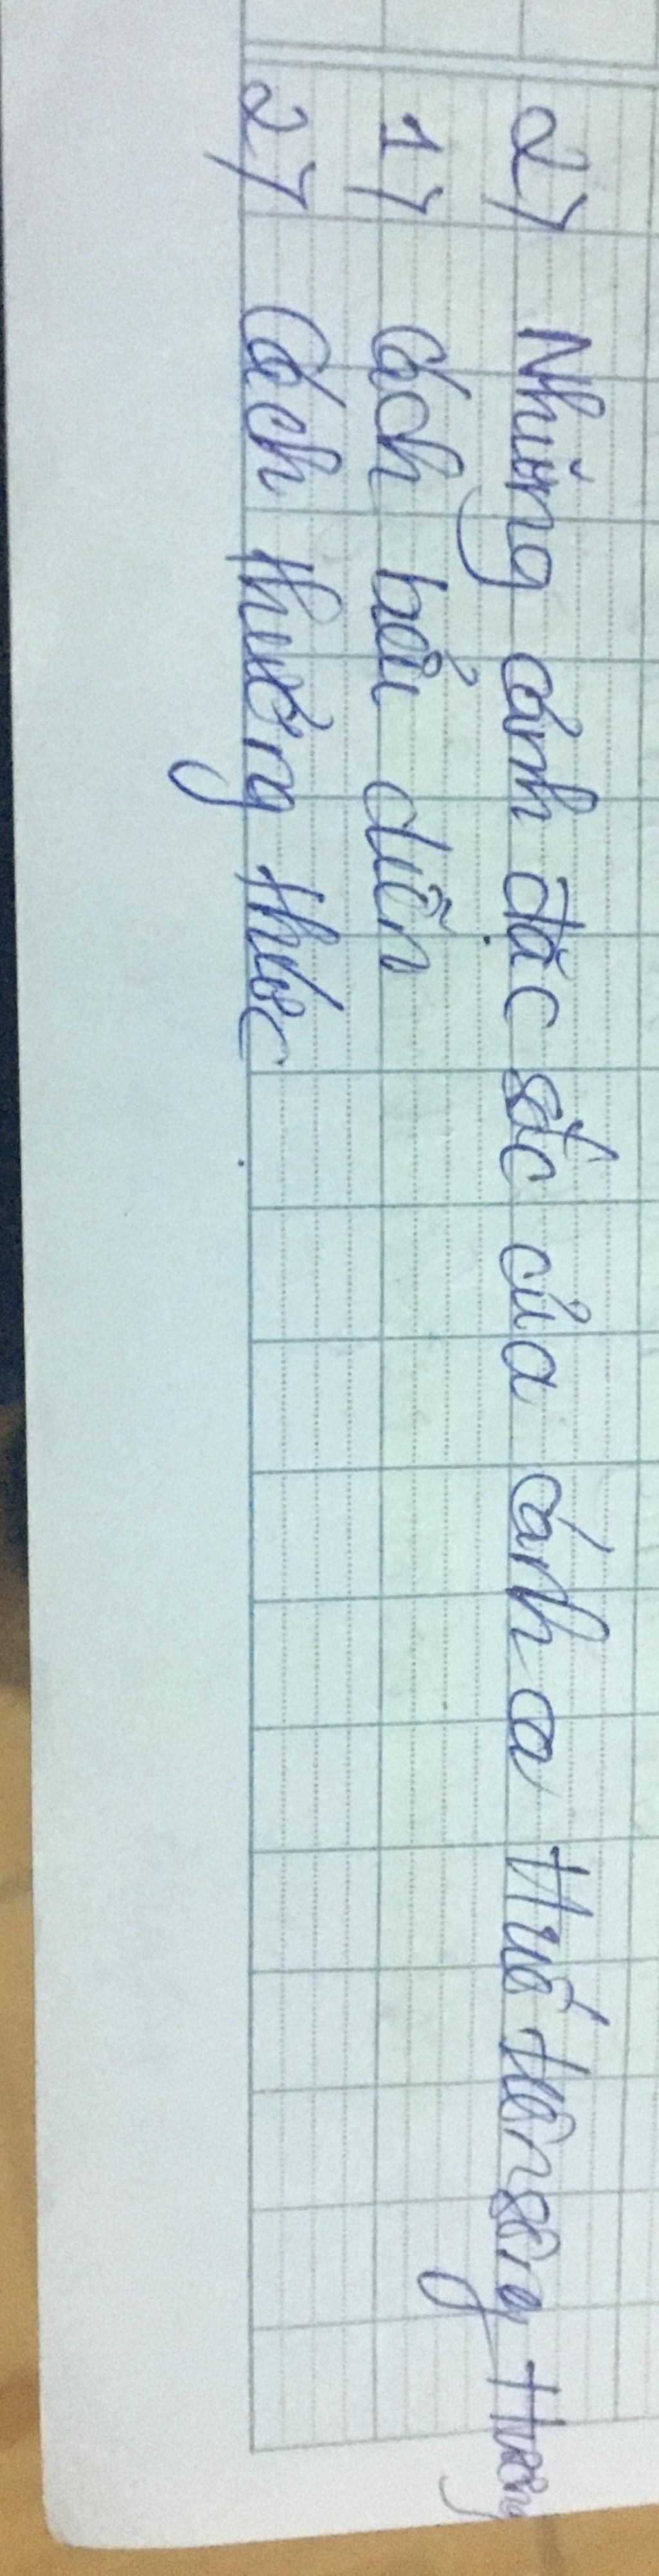 2/ Những cảnh đặc sắc của cảnh ca Huế trên sông Hương
1/ Cách biểu diễn
2/ Cách thưởng thức